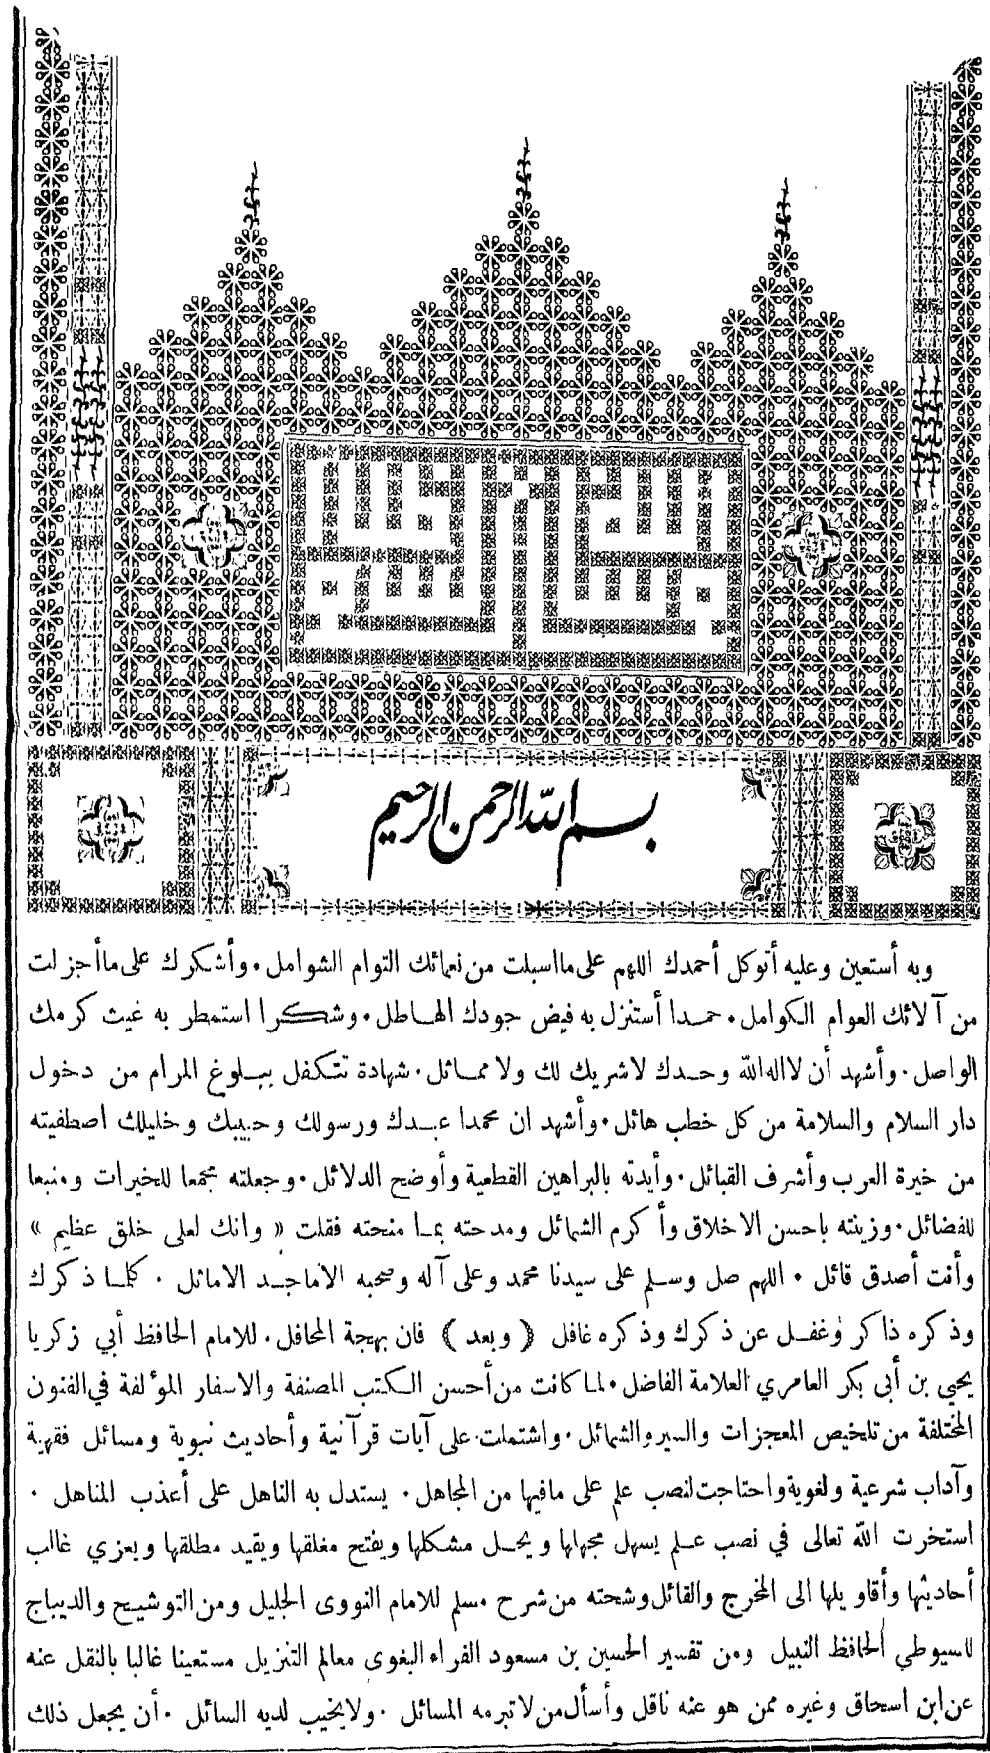 بسم الله الرحمن الرحيم
وبه أستعين وعليه أتوكل أحمدك اللهم على ماأسبلت من نعمائك التوام الشوامل ٠ وأشكرك على ماأجزلت
من آلائك العوام الكوامل ٠ حمدا أستنزل به فيض جودك الهاطل ٠ وشكرا استمطر به غيث كرمك
الواصل ٠ وأشهد أن لااله الله وحدك لاشريك لك ولا مماثل ٠ شهادة تتكفل ببلوغ المرام من دخول
دار السلام والسلامة من كل خطب هائل ٠ وأشهد ان محمدا عبدك ورسولك وحبيبك وخليلك اصطفيته
من خيرة العرب وأشرف القبائل ٠ وأيدته بالبراهين القطعية وأوضح الدلائل ٠ وجعلته مجمعا للخيرات ومنبعا
للفضائل ٠ وزينته باحسن الاخلاق وأكرم الشمائل ومدحته بما منحته فقلت « وانك لعلى خلق عظيم »
وأنت أصدق قائل ٠ اللهم صل وسلم على سيدنا محمد وعلى آله وصحبه الاماجد الاماثل ٠ كلما ذكرك
وذكره ذاكر وغفل عن ذكرك وذكره غافل ( وبعد ) فان بهجة المحافل ٠ للامام الحافظ أبي زكريا
يحيى بن أبى بكر العامري العلامة الفاضل ٠ لما كانت من أحسن الكتب المصنفة والاسفار المؤلفة في الفنون
المختلفة من تلخيص المعجزات والسير والشمائل ٠ واشتملت على آيات قرآنية وأحاديث نبوية ومسائل فقهية
وآداب شرعية ولغوية واحتاجت لنصب علم على مافيها من المجاهل ٠ يستدل به الناهل على أعذب المناهل ٠
استخرت الله تعالى في نصب علم يسهل مجهلها ويحل مشكلها ويفتح مغلقها ويقيد مطلقها ويعزي غالب
أحاديثها وأقاويلها الى المخرج والقائل وشحته من شرح مسلم للامام النووى الجليل ومن التوشيح والديباج
للسيوطي الحافظ النبيل ومن تفسير الحسين بن مسعود الفراء البغوى معالم التنزيل مستعينا غالبا بالنقل عنه
عن ابن اسحاق وغيره ممن هو عنه ناقل وأسأل من لاتبرمه المسائل ٠ ولايخيب لديه السائل ٠ أن يجعل ذلك